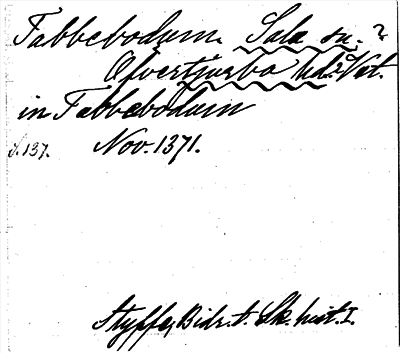 Tabbebodum. Sala sn.?
Øfvertjurbo hd.? Vst.
in Tabbebodum
S.137. Nov. 1371.
Styffe, Bidr. t. Sk. hist. I.